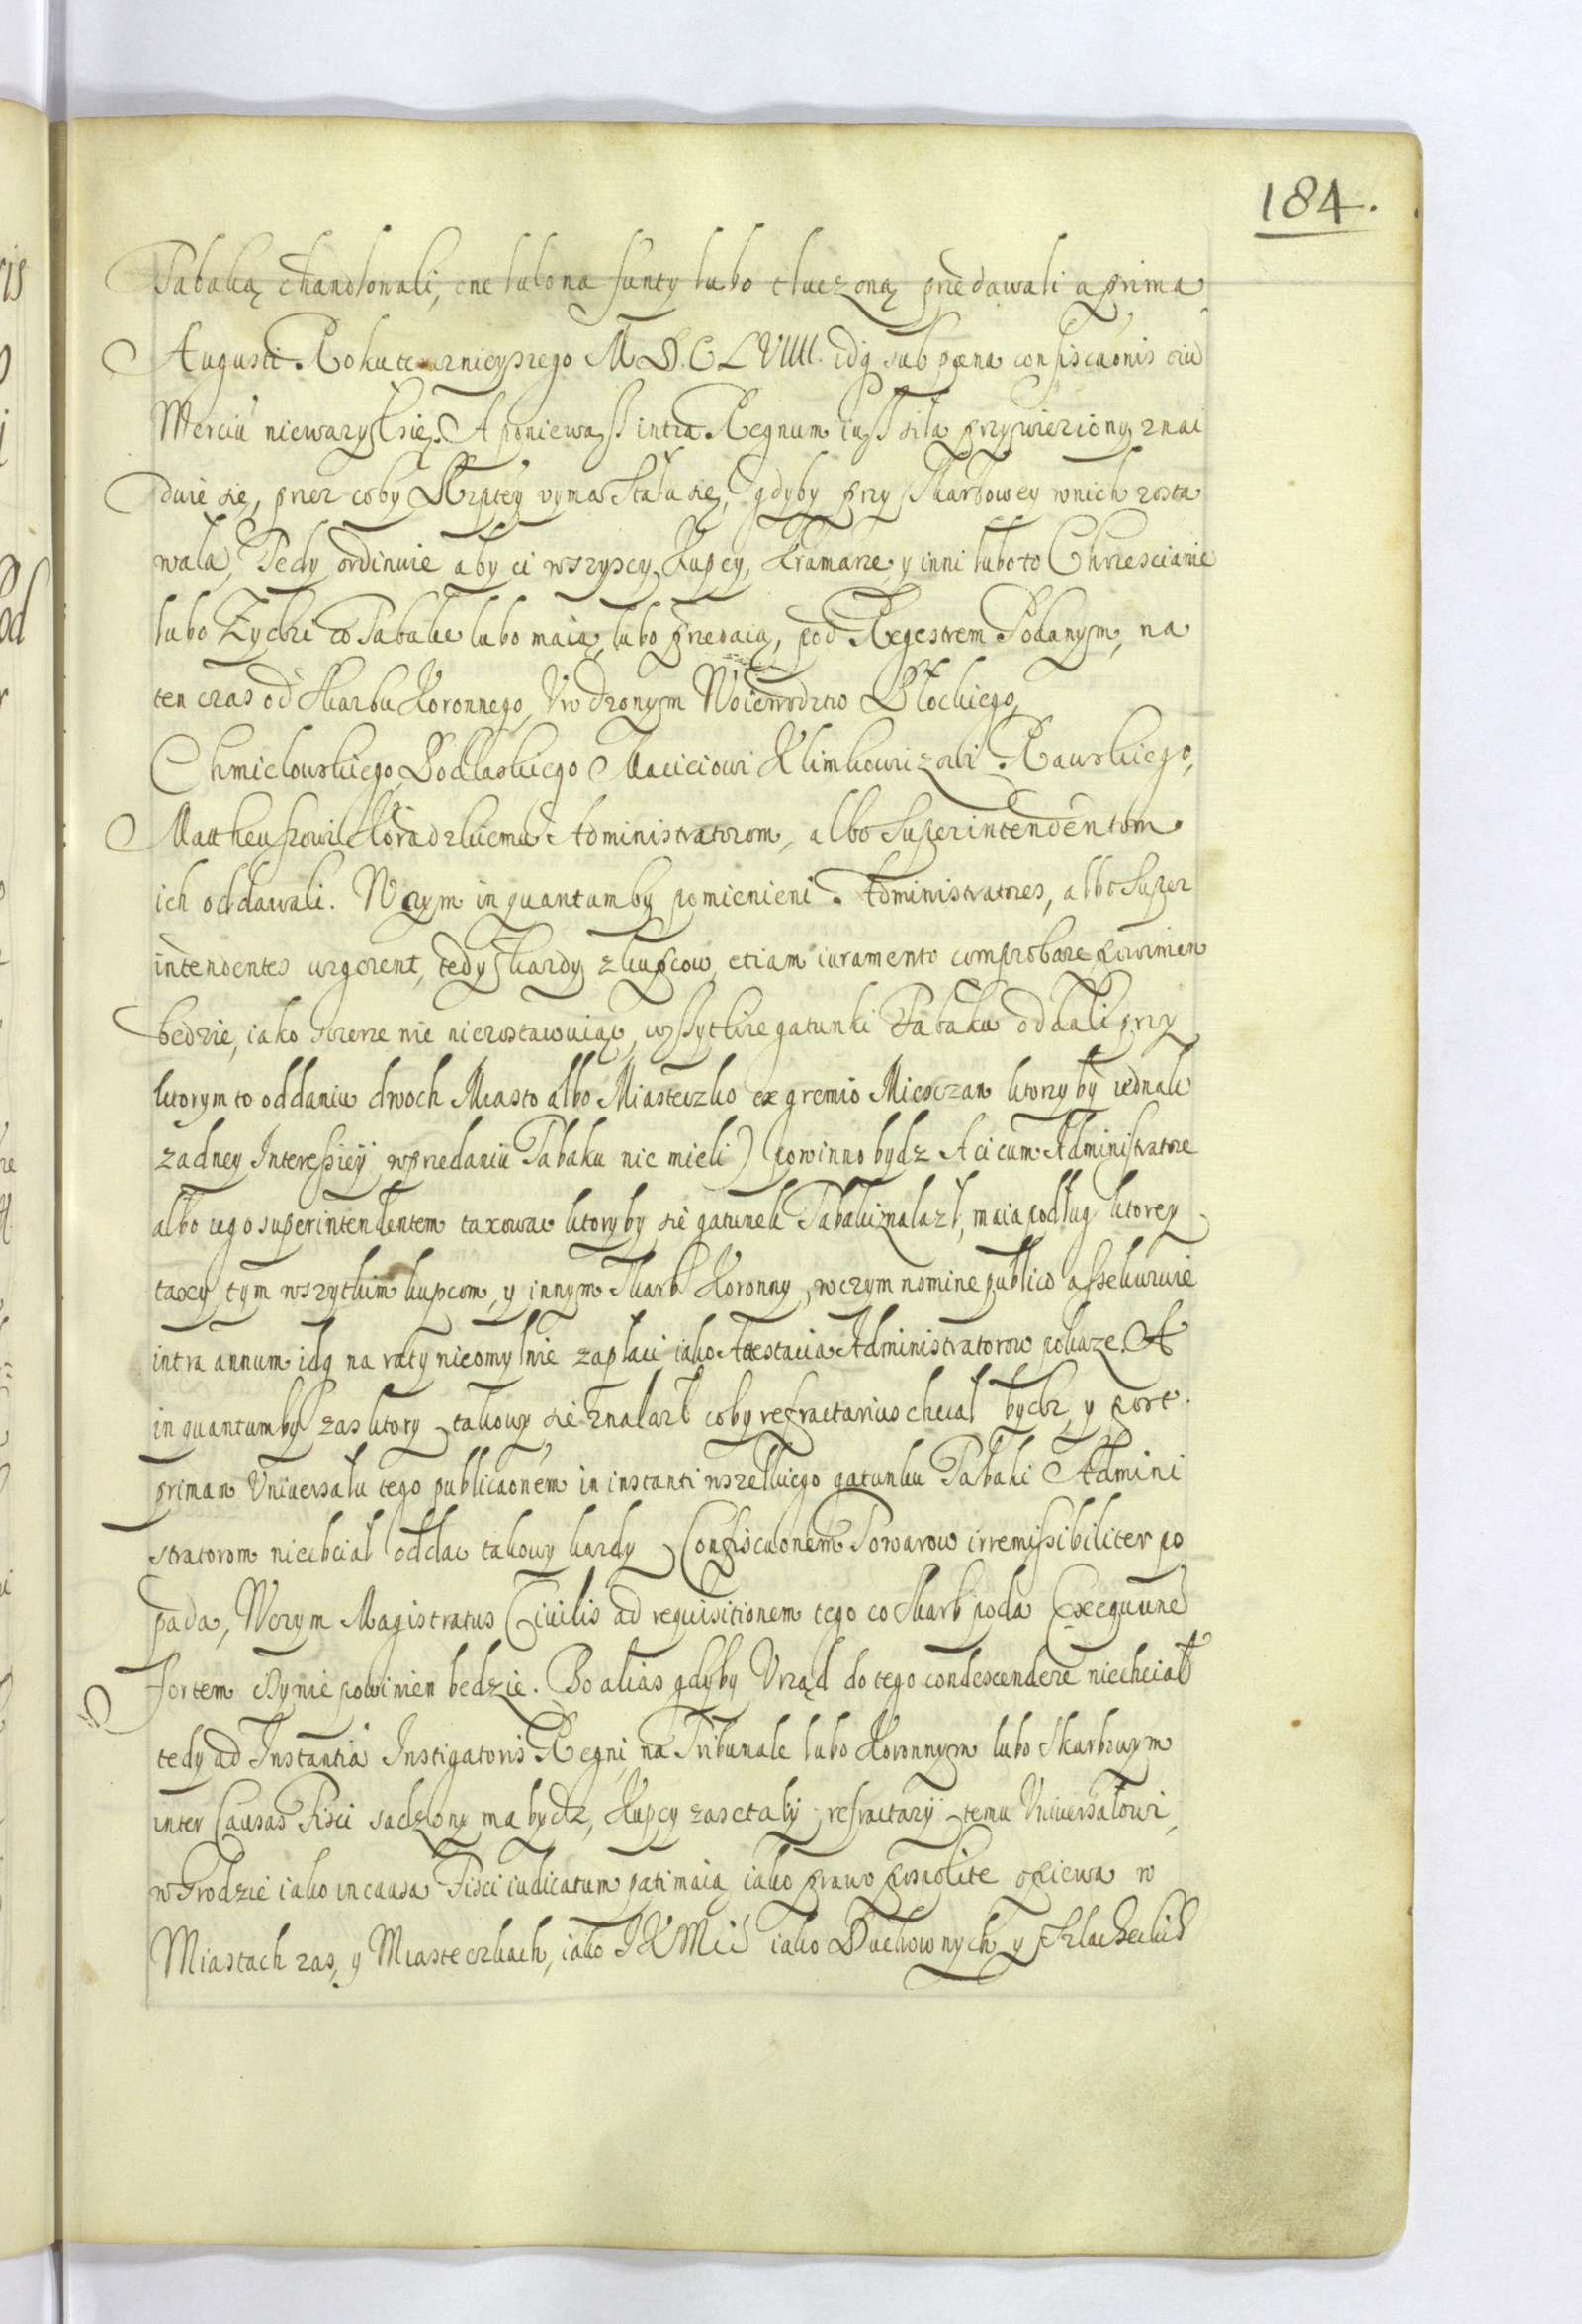 184.
Tabaką chandlowali, one lubo na funty lubo tłuczoną przedawali a prima
Augusti Roku teraznieyszego M.D.C.LVIIII. idq sub pœna confiscaonis eiu
Merciu niewazyl sie. A poniewasz intra Regnum iusz siła przywieziony znai
duie się, przez coby Rzptey vyma stała się, gdyby przy Skarbowey wnich zosta
wala, Tedy ordinuie aby ci wszyscy Kupcy, Kramarze, y inni lubo to Chrzescianie
lubo Zydzi co Tabakę lubo maią, lubo przedaią, pod Regestrem Podanym, na
ten czas od Skarbu Koronnego, Vrodzonym Woiewodztwo Płockiego,
Chmielowskiego, Podlaskiego Maciciowi Klimkowiczowi Rawskiego,
Mattheuszowi Koradzkiemu Administratorom, albo Superintendentom
ich oddawali. W czym in quantum by pomienieni Administratores, albo Super
intendentes urgerent, tedy kardy z kupcow, etiam iuramento comprobare powinien
bedzie, iako szerze nic niezostawuiąc, wszytkie gatunki Tabaku oddali przy
ktorym to oddaniu dwoch Miasto albo Miasteczko ex gremio Miesczan ktorzy by iednak
zadney Interessiey w przedaniu Tabaku nie mieli) powinno bydz A ci cum Administratore
albo iego superintendentem taxowac ktoryby sie gatunek Tabaki znalazł, maia podług ktorey
taxy tym wszytkim kupcom, y innym Skarb Koronny, w czym nomine publico assekuruie
intra annum idq na raty nieomylnie zapłaci iako Attestacia Administratorow pokaze. A
in quantum by zas ktory takowy sie znalazł coby refractarius chciał bydz y post
primam Vniuersalu tego publicaonem in instanti wszelkiego gatunku Tabaki Admini
stratorom niechciał oddac takowy kardy Confiscaonem Towarow irremissibiliter po
pada, W czym Magistratus Ciuilis ad requisitionem tego co Skarb poda Exequune
fortem czynic powinien bedzie. Bo alias gdyby Vrząd do tego condescendere niechciał
tedy ad Instantia Instigatoris Regni na Tribunale lubo Koronnym lubo Skarbowym
inter Causas Fisci sadzony ma bydz, Kupcy zas ctaby refractary temu Vniuersalowi,
w Grodzie iako in causa Fisci iudicatum pati maią iako prawo pospolite opiewa w
Miastach zas, y Miasteczkach, iako JKMci iako Duchownych y Szlacheckich